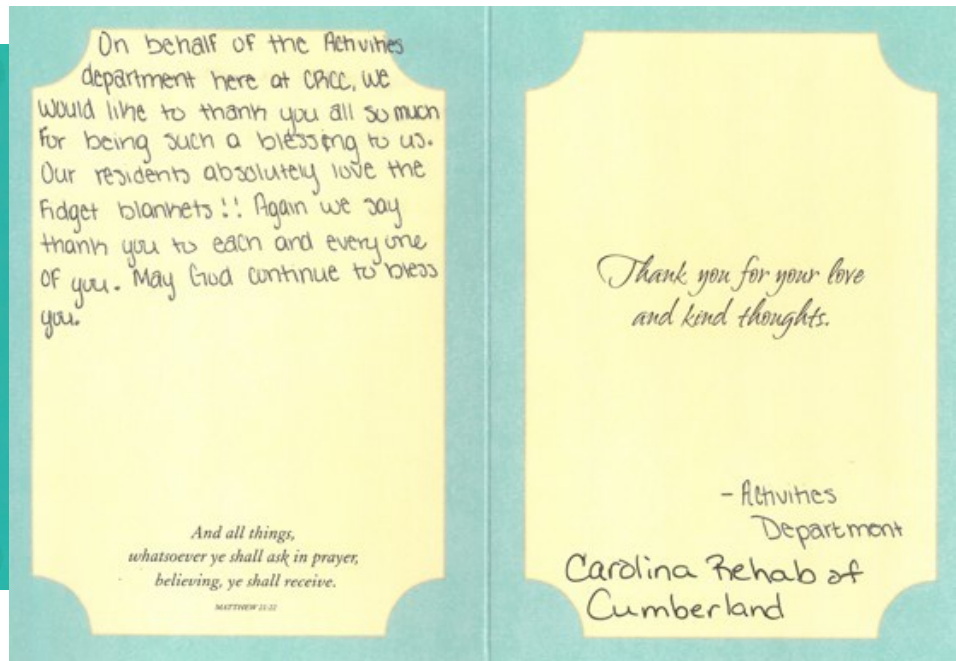 On behalf of the Activities
department here at CRCC, we
would like to thank you all so much
for being such a blessing to us.
Our residents absolutely love the
Fidget blankets!! Again we say
thank you to each and every one
of you. May God continue to bless
you.
And all things,
whatsoever ye shall ask in prayer,
believing, ye shall receive.
MATTHEW 21:22
Thank you for your love
and kind thoughts.
- Activities
Department
Carolina Rehab of
Cumberland